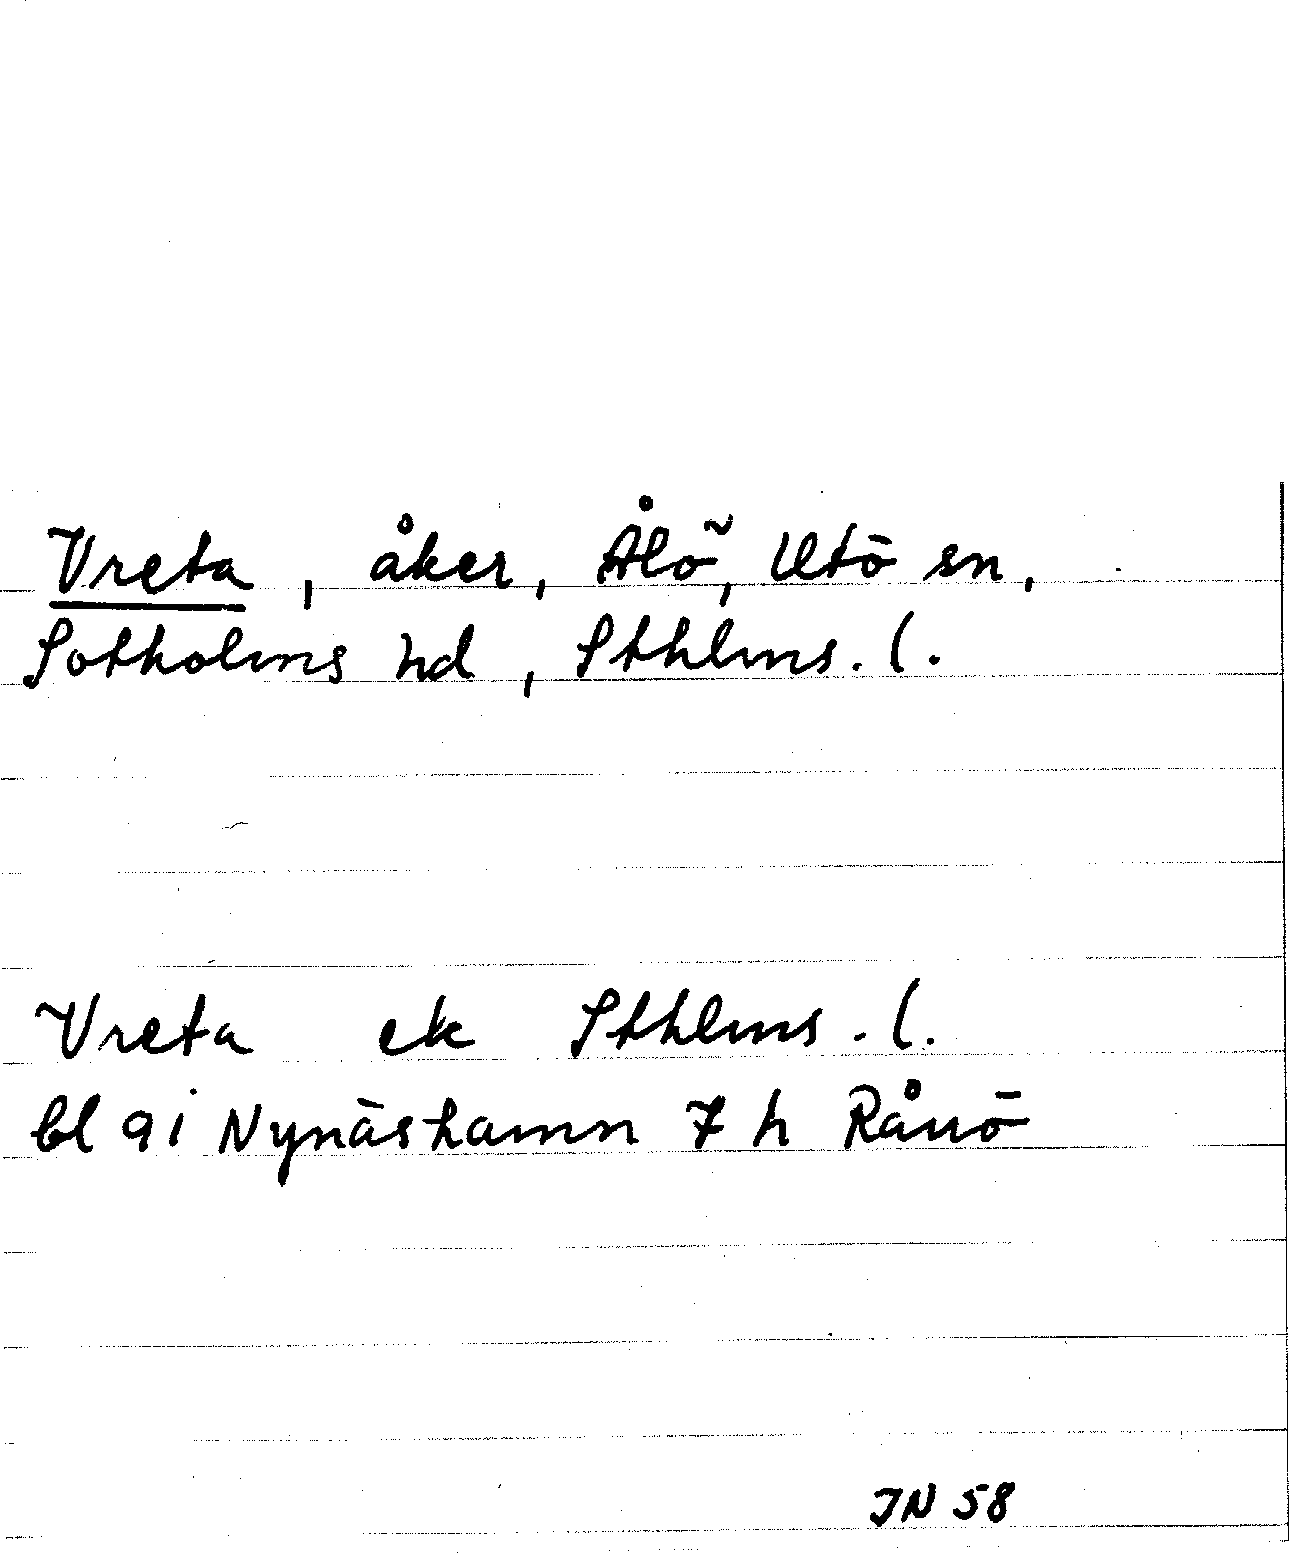 Vreta, åker, Ålö, Utö sn,
Sotholms hd, Sthlms. l.
Vreta ek Sthlms. l.
bl 9i Nynäshamn 7 h Rånö
JN 58